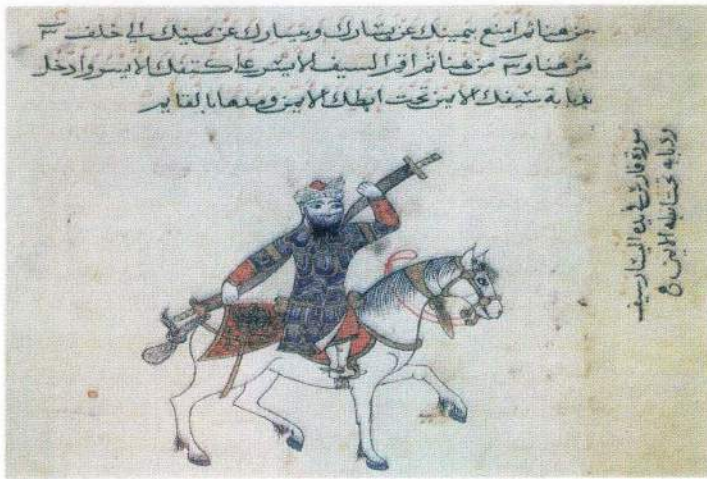 من هنا ثم امنع بيمينك عن يسارك وبيسارك عن يمينك الى خلف
من هنا و من هنا ثم اقم السيف الايسر على كتفك الايسر وادخل
ذبابة سيفك الايمن تحت ابطك الايمن ومدها بالقايم
صورة فارس في يده اليسار سيف
وذبابه تحت ابطه الايمن